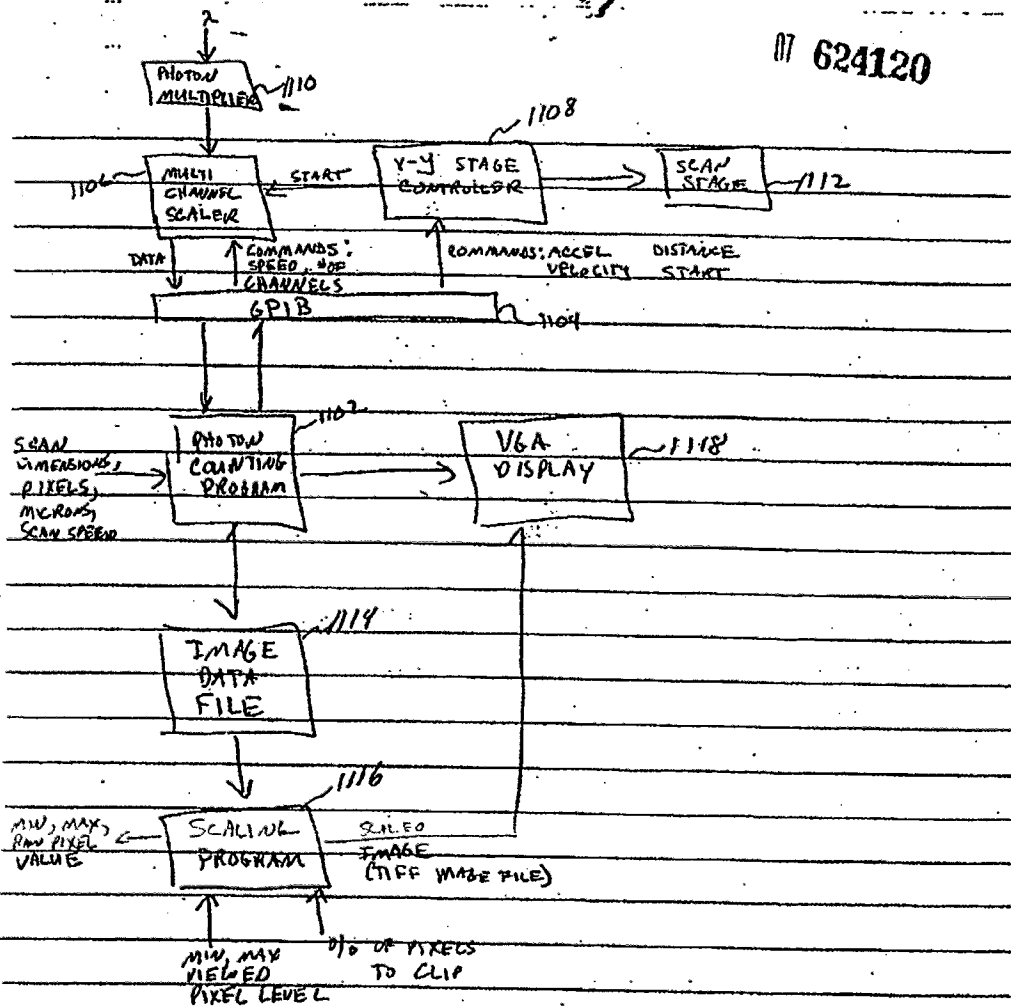 07 624120
λ
PHOTON
MULTIPLIER
1110
1108
1106
MULTI
CHANNEL
SCALER
START
X-Y STAGE
CONTROLLER
SCAN
STAGE
1112
DATA
COMMANDS:
SPEED, # OF
CHANNELS
COMMANDS: ACCEL DISTANCE
VELOCITY START
GPIB
1104
1102
SCAN
DIMENSIONS,
PIXELS,
MICRONS,
SCAN SPEED
PHOTON
COUNTING
PROGRAM
VGA
DISPLAY
1118
1114
IMAGE
DATA
FILE
1116
MIN, MAX,
RAW PIXEL
VALUE
SCALING
PROGRAM
SCALED
IMAGE
(TIFF IMAGE FILE)
MIN, MAX
VIEWED
PIXEL LEVEL
% OF PIXELS
TO CLIP